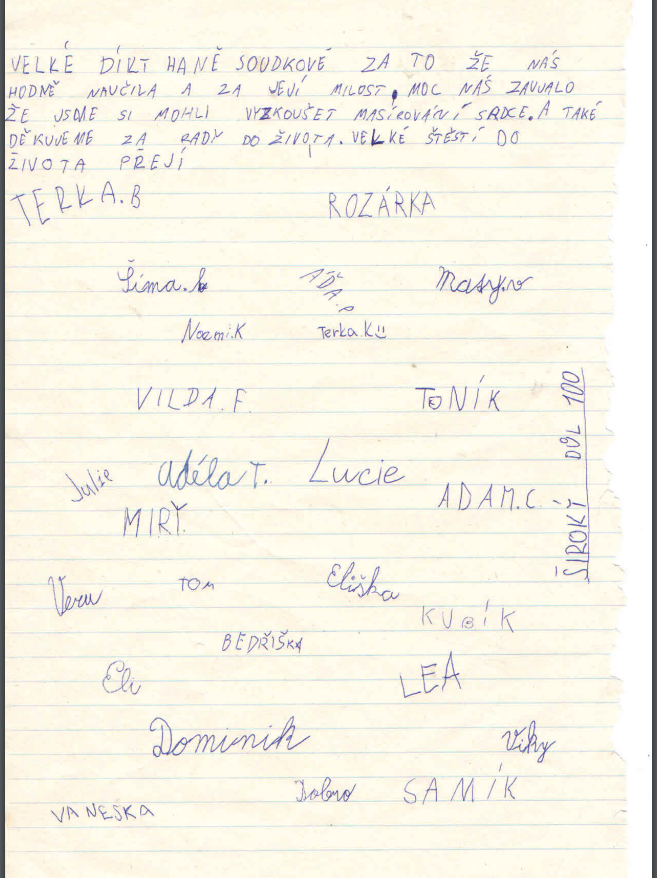 VELKÉ DÍKT HANĚ SOUDKOVÉ ZA TO ŽE NÁS
HODNĚ NAUČILA A ZA JEJÍ MILOST, MOC NÁS ZAUJALO
ŽE JSME SI MOHLI VYZKOUŠET MASÍROVÁNÍ SRDCE. A TAKÉ
DĚKUJEME ZA RADY DO ŽIVOTA. VELKÉ ŠTĚSTÍ DO
ŽIVOTA PŘEJÍ
TERKA.B ROZÁRKA
Šíma.
ÁĎA.P
Noemi.K Terka.K
VILDA.F. TONÍK
ŠIROKÝ DŮL 100
Julie Adéla T. Lucie
ADAM.C.
MIRY.
Veru TOM Eliška
KUBÍK
BEDŘIŠKA
Eli LEA
Dominik Viky
SAMÍK
VANESKA